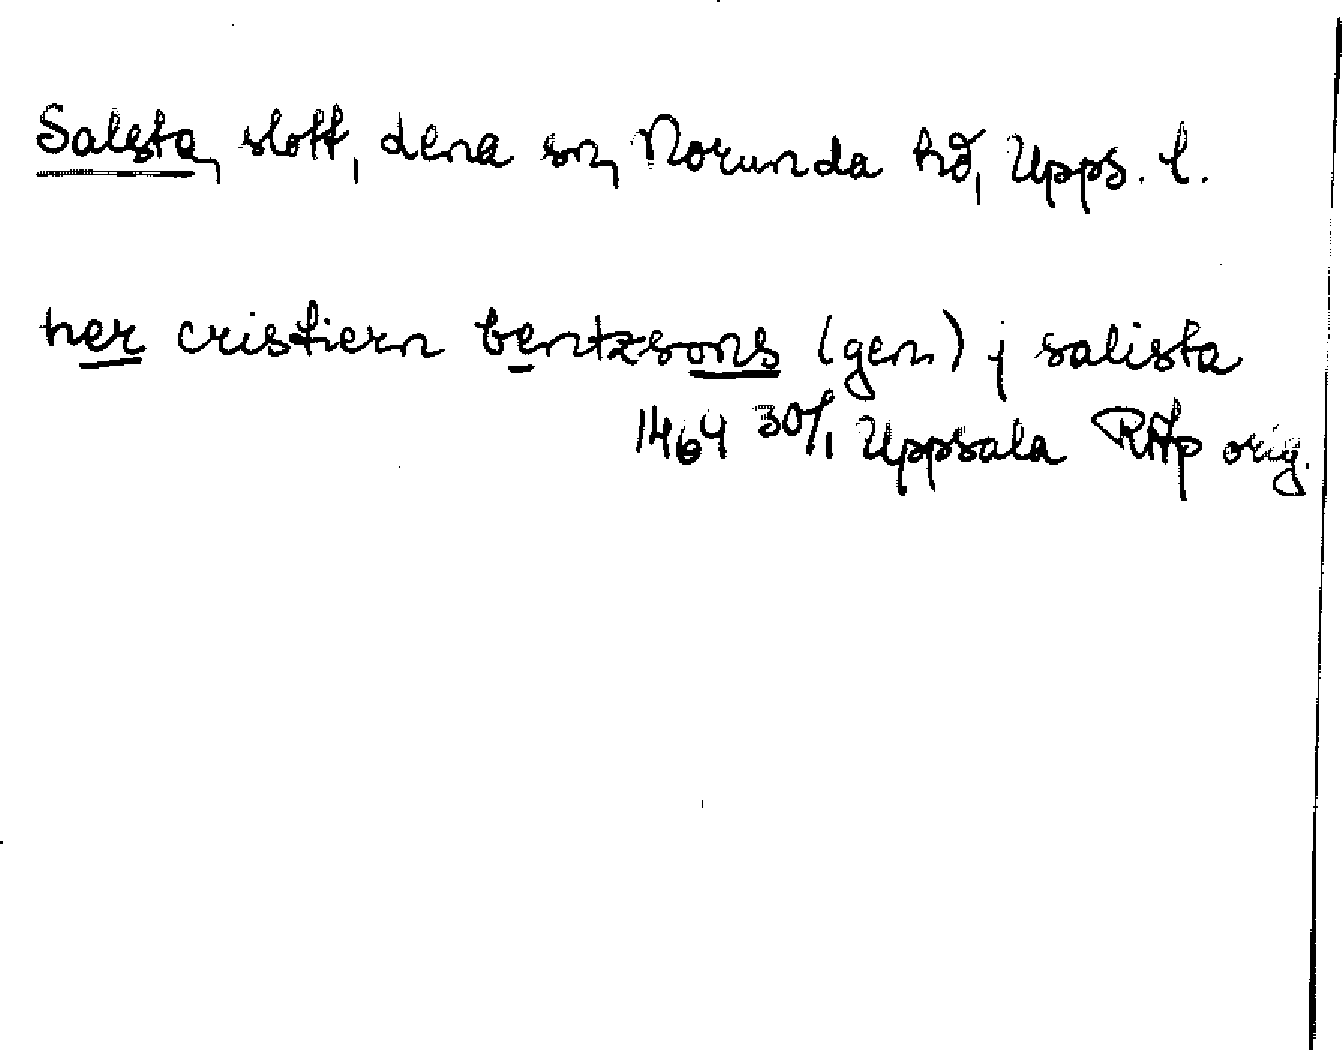 Salsta, slott, Lena sn, Norunda hd, Upps. l.
her cristiern bentzsons (gen) j salista
1464 30/1 Uppsala RAp orig.